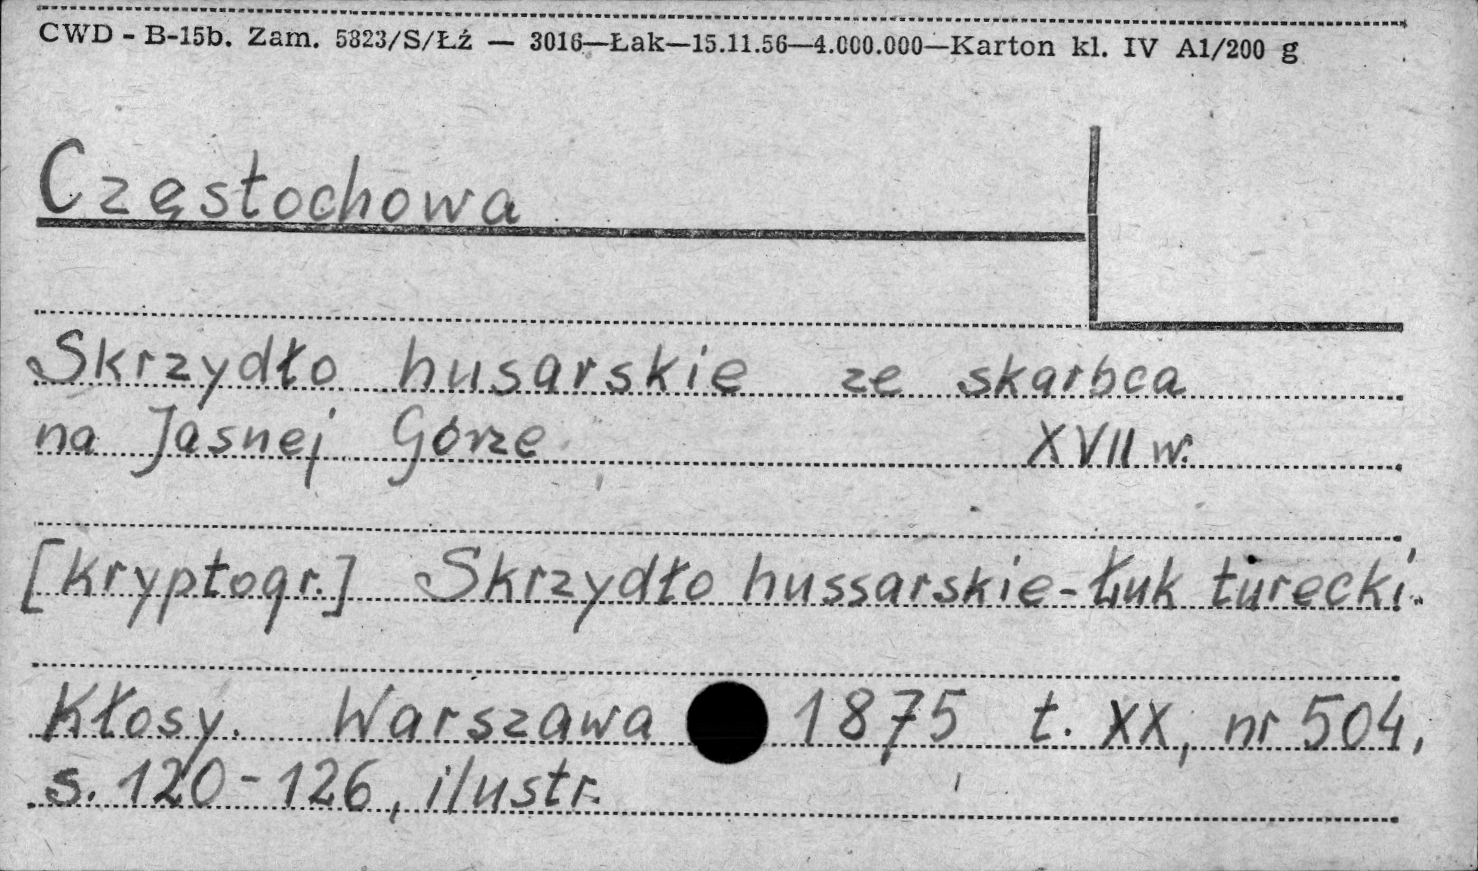 CWD - B-15b. Zam. 5823/S/Łź — 3016—Łak—15.11.56—4.000.000—Karton kl. IV A1/200 g
Częstochowa
Skrzydło husarskie ze skarbca
na Jasnej Górze XVII w.
[Kryptogr.] Skrzydło hussarskie-Łuk turecki.
Kłosy. Warszawa 1875 t. XX, nr 504,
s. 120-126, ilustr.